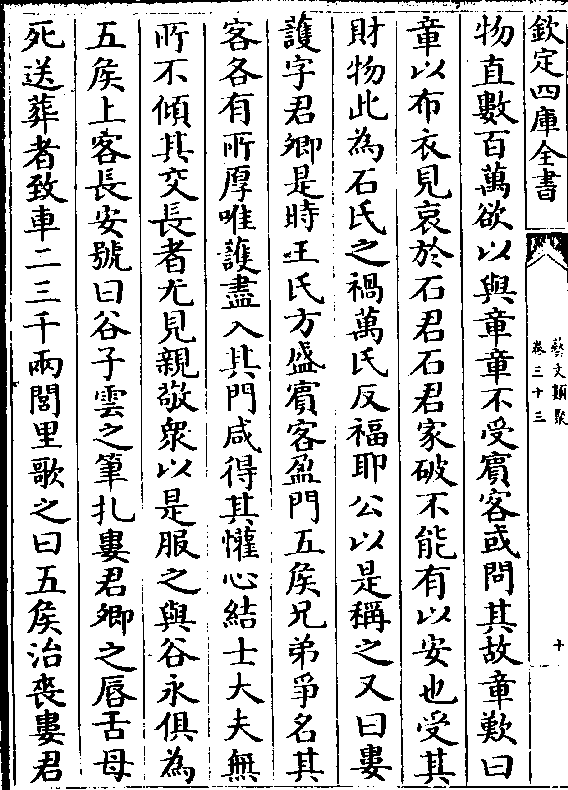 欽定四庫全書
藝文類聚
卷三十三
十
物直數百萬欲以與章章不受賓客或問其故章歎曰
章以布衣見哀於石君石君家破不能有以安也受其
財物此為石氏之禍萬氏反福耶公以是稱之又曰婁
護字君卿是時王氏方盛賓客盈門五矦兄弟爭名其
客各有所厚唯護盡入其門咸得其懽心結士大夫無
所不傾其交長者尤見親敬衆以是服之與谷永俱為
五矦上客長安號曰谷子雲之筆札婁君卿之唇舌母
死送葬者致車二三千兩閭里歌之曰五矦治喪婁君